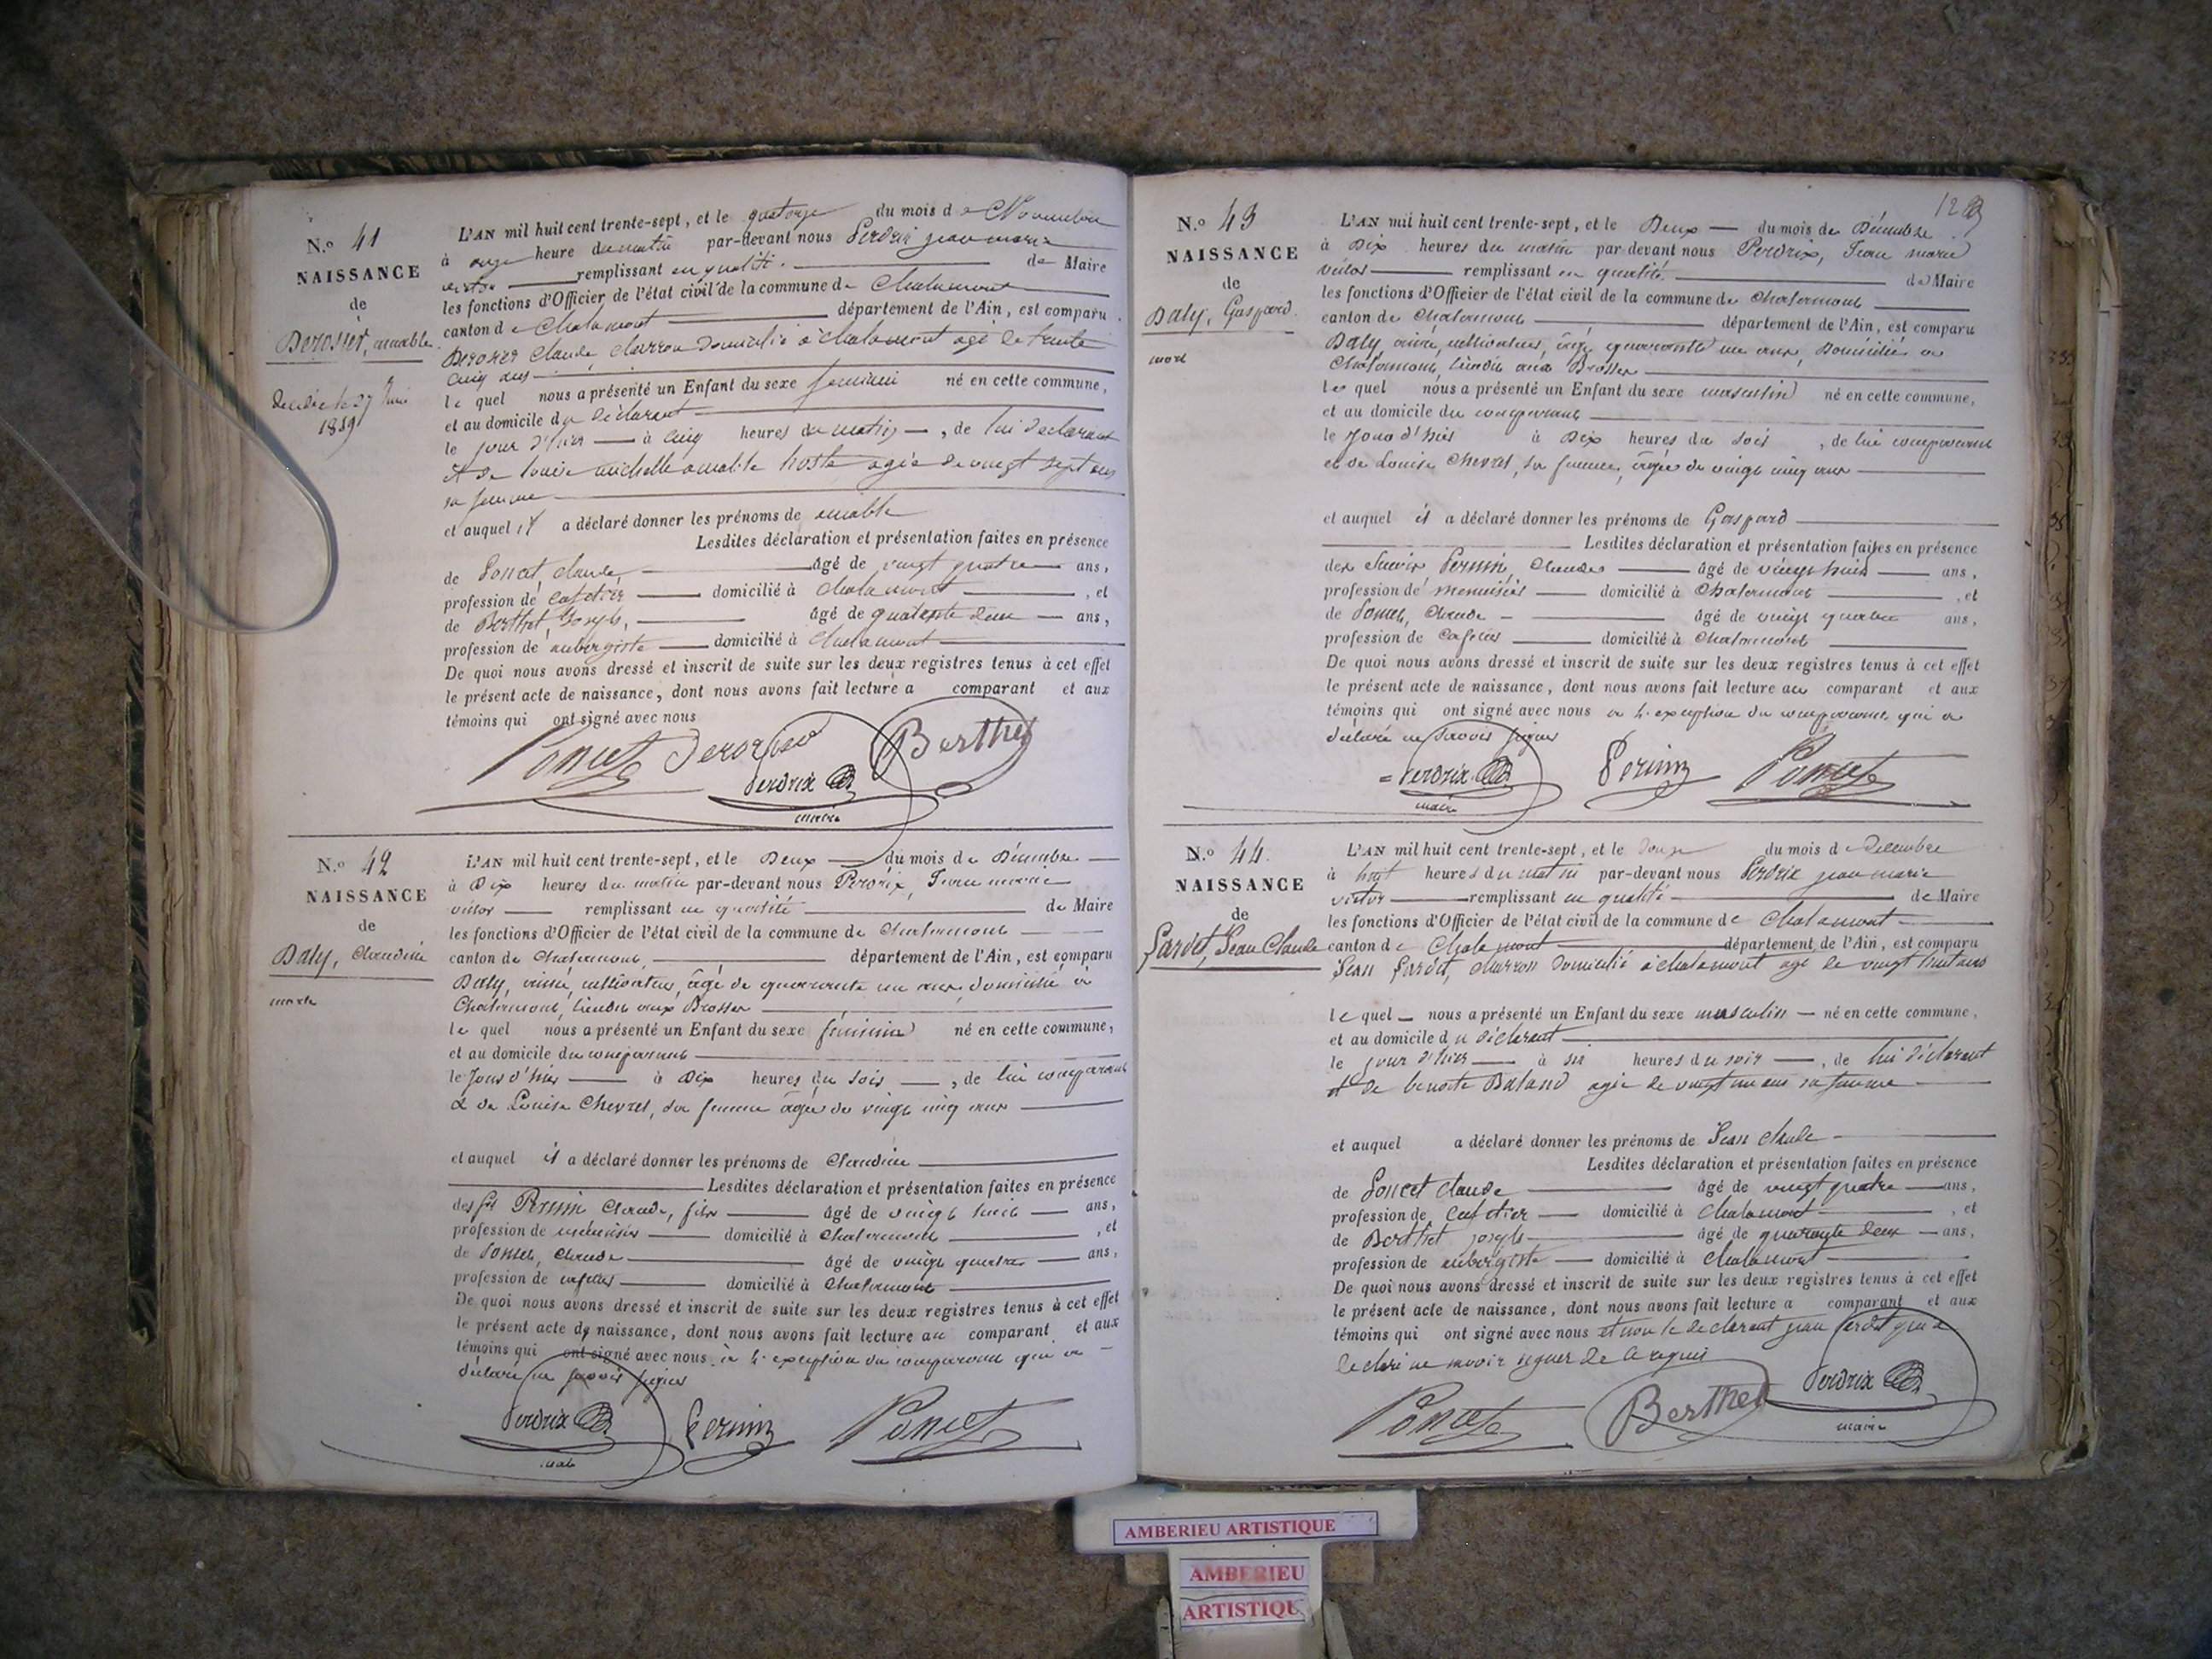 N.o 41
NAISSANCE
de
Derosier, aimable
Décédée le 27 Juin
1889
L'AN mil huit cent trente-sept, et le quatorze du mois de Novembre
à onze heure du matin par-devant nous Perdrix jean marie
victor remplissant en qualité de Maire
les fonctions d'Officier de l'état civil de la commune de Chalamont
canton de Chalamont département de l'Ain, est comparu
Derosier Claude, charron domicilié à chalamont agé de trente
cinq ans
le quel nous a présenté un Enfant du sexe feminin né en cette commune,
et au domicile du déclarant
le jour d'hier à cinq heures du matin, de lui déclarant
et de louise michelle amable hoste agée de vingt sept ans
sa femme
et auquel il a déclaré donner les prénoms de aimable
Lesdites déclaration et présentation faites en présence
de Poncet, claude, âgé de vingt quatre ans,
profession de cafetier domicilié à chalamont, et
de Berthet, Joseph, âgé de quarante deux ans,
profession de aubergiste domicilié à chalamont
De quoi nous avons dressé et inscrit de suite sur les deux registres tenus à cet effet
le présent acte de naissance, dont nous avons fait lecture a comparant et aux
témoins qui ont signé avec nous
Poncet Derosier Berthet
Perdrix
maire
N.o 42
NAISSANCE
de
Baly, Claudine
morte
L'AN mil huit cent trente-sept, et le Deux du mois de Décembre
à Dix heures du matin par-devant nous Perdrix, Jean marie
victor remplissant en qualité de Maire
les fonctions d'Officier de l'état civil de la commune de Chalamont
canton de Chalamont, département de l'Ain, est comparu
Baly, aimé, cultivateur, âgé de quarante un ans, domicilié à
Chalamont, lieudit aux Brosses
le quel nous a présenté un Enfant du sexe féminin né en cette commune,
et au domicile du comparant
le Jour d'hier à Dix heures du soir, de lui comparant
& de Louise Chevret, sa femme âgée de vingt cinq ans
et auquel il a déclaré donner les prénoms de Claudine
Lesdites déclaration et présentation faites en présence
des Srs Perrin Claude, fils âgé de vingt huit ans,
profession de menuisier domicilié à Chalamont, et
de Poncet, Claude âgé de vingt quatre ans,
profession de cafetier domicilié à Chalamont
De quoi nous avons dressé et inscrit de suite sur les deux registres tenus à cet effet
le présent acte de naissance, dont nous avons fait lecture au comparant et aux
témoins qui ont signé avec nous à l'exception du comparant qui a
déclaré ne savoir signer
Perdrix Perrin Poncet
maire
128
N.o 43
NAISSANCE
de
Baly, Gaspard.
mort
L'AN mil huit cent trente-sept, et le Deux du mois de Décembre
à Dix heures du matin par-devant nous Perdrix, Jean marie
victor remplissant en qualité de Maire
les fonctions d'Officier de l'état civil de la commune de Chalamont
canton de Chalamont département de l'Ain, est comparu
Baly aimé, cultivateur, âgé quarante un ans, Domicilié à
Chalamont, lieudit aux Brosses
le quel nous a présenté un Enfant du sexe masculin né en cette commune,
et au domicile du comparant
le Jour d'hier à Dix heures du soir, de lui comparant
et de Louise Chevret, sa femme, âgée de vingt cinq ans
et auquel il a déclaré donner les prénoms de Gaspard
Lesdites déclaration et présentation faites en présence
des Sieurs Perrin, Claude âgé de vingt huit ans,
profession de menuisier domicilié à Chalamont, et
de Poncet, Claude âgé de vingt quatre ans,
profession de cafetier domicilié à Chalamont
De quoi nous avons dressé et inscrit de suite sur les deux registres tenus à cet effet
le présent acte de naissance, dont nous avons fait lecture au comparant et aux
témoins qui ont signé avec nous à l'exception du comparant, qui a
déclaré ne savoir signer
Perdrix Perrin Poncet
maire
N.o 44.
NAISSANCE
de
Sardet, Jean Claude
L'AN mil huit cent trente-sept, et le douze du mois de decembre
à huit heures du matin par-devant nous Perdrix jean marie
victor remplissant en qualité de Maire
les fonctions d'Officier de l'état civil de la commune de Chalamont
canton de Chalamont département de l'Ain, est comparu
Jean Sardet, charron domicilié à chalamont agé de vingt huit ans
le quel nous a présenté un Enfant du sexe masculin né en cette commune,
et au domicile du déclarant
le jour d'hier à six heures du soir, de lui déclarant
et de benoite Baland agée de vingt un ans sa femme
et auquel a déclaré donner les prénoms de Jean claude
Lesdites déclaration et présentation faites en présence
de Poncet claude âgé de vingt quatre ans,
profession de cafetier domicilié à chalamont, et
de Berthet joseph âgé de quarante deux ans,
profession de aubergiste domicilié à chalamont
De quoi nous avons dressé et inscrit de suite sur les deux registres tenus à cet effet
le présent acte de naissance, dont nous avons fait lecture a comparant et aux
témoins qui ont signé avec nous et non le declarant jean Sardet qui a
declaré ne savoir signer de ce requis
Poncet Berthet Perdrix
maire
AMBERIEU ARTISTIQUE
AMBERIEU
ARTISTIQUE